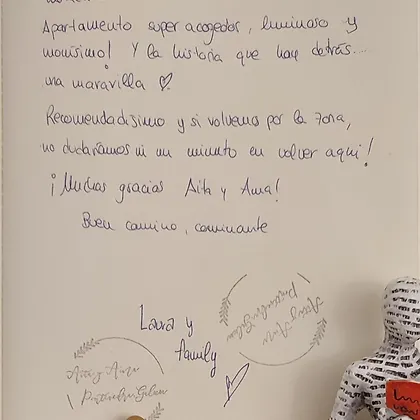 Apartamento super acogedor, luminoso y
monísimo! Y la historia que hay detrás....
una maravilla ♡.
Recomendadísimo y si volvemos por la zona,
no dudaríamos ni un minuto en volver aquí!
¡Muchas gracias Aita y Ama!
Buen camino, caminante
Laura y
family
Aita y Ama